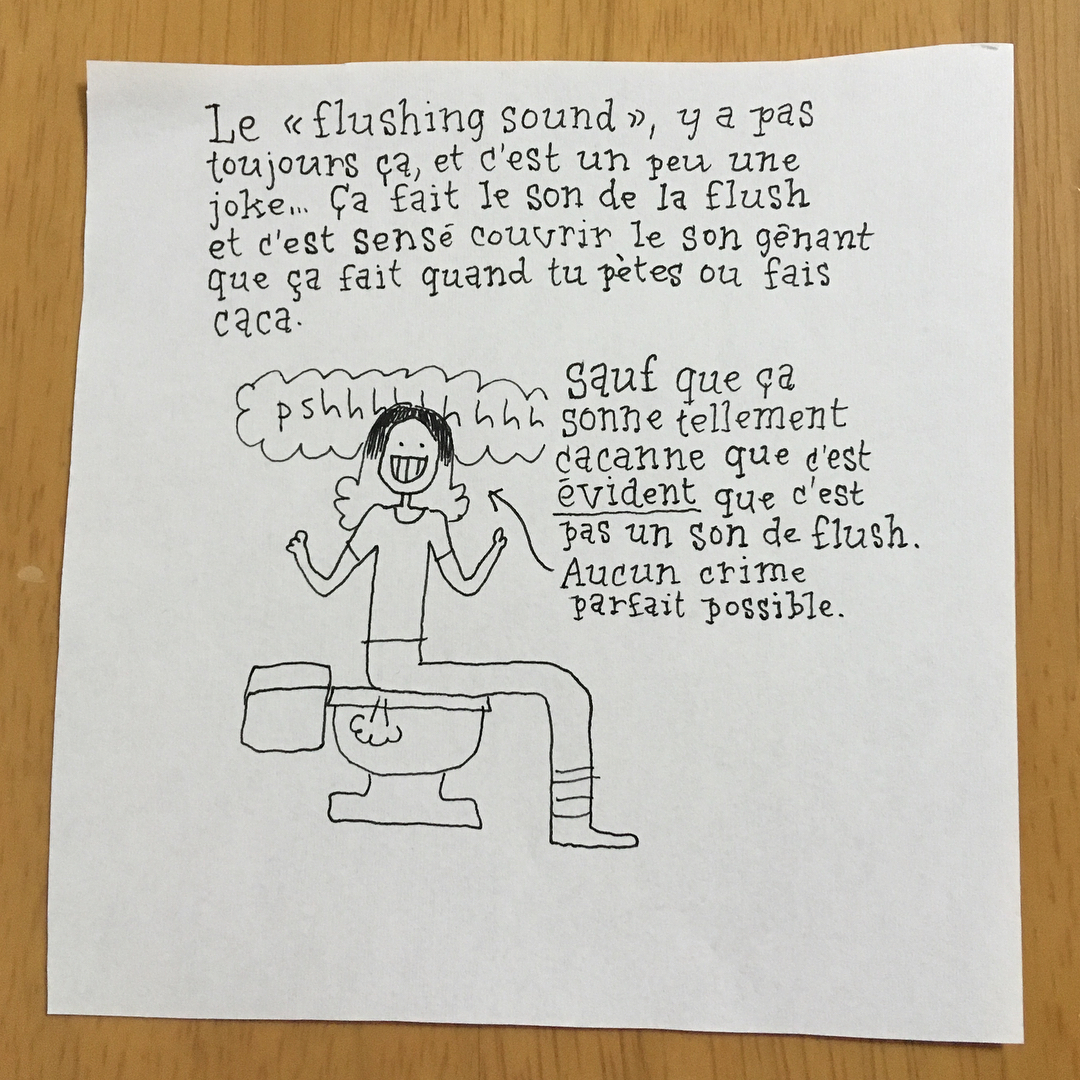 Le « flushing sound », y a pas
toujours ça, et c'est un peu une
joke... Ça fait le son de la flush
et c'est sensé couvrir le son gênant
que ça fait quand tu pètes ou fais
caca.
pshhhhhhhh
Sauf que ça
sonne tellement
cacanne que c'est
évident que c'est
pas un son de flush.
Aucun crime
parfait possible.